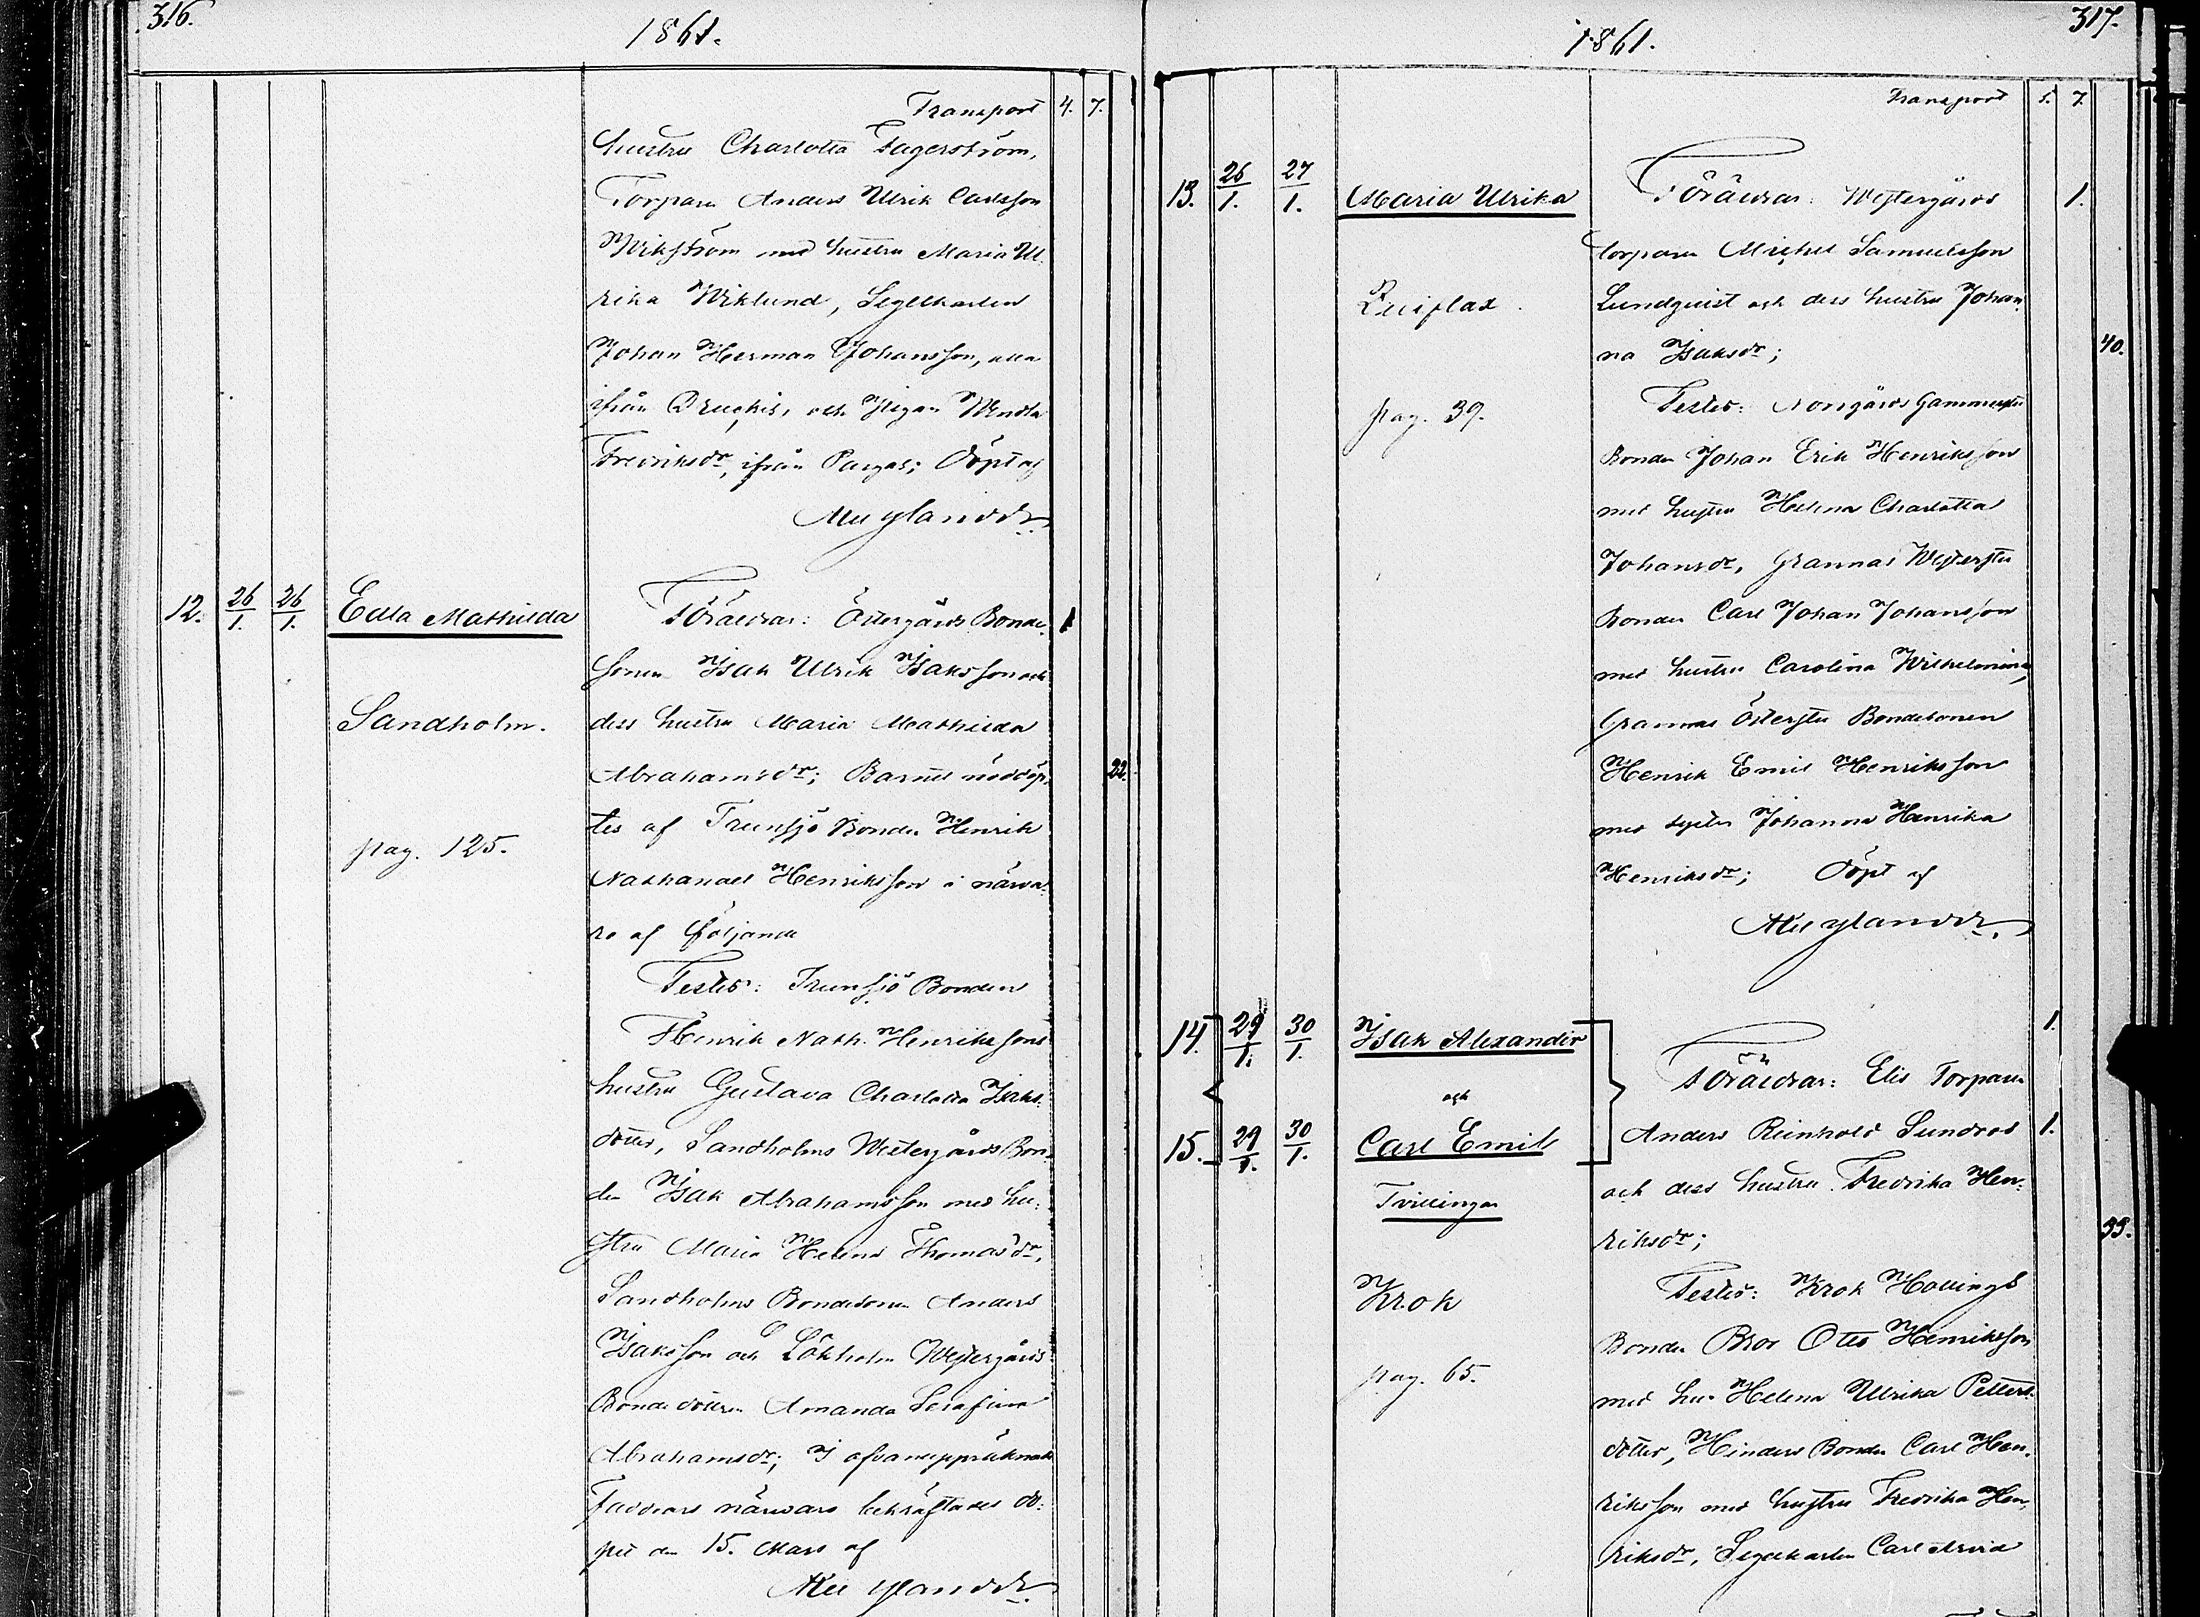 316.
1861.
Transport 4. 7.
hustru Charlotta Fagerström,
Torparen Anders Ulrik Carlsson
Wikström med hustru Maria Ul-
rika Wiklund, Segelkarlen
Johan Herman Johansson, alla
ifrån och Pigan Wendla
Fredriksdr, ifrån Pargas; Döpt af
12. 26/1. 26/1. Edla Mathilda Föräldrar: Östergårds Bonde- 1
sonen Isak Ulrik Isaksson och
Sandholm. dess hustru Maria Mathilda
Abrahamsdr; Barnet nöddöp- 22.
tes af Trunsjö Bonden Henrik
pag. 125.
Nathanael Henriksson i närva-
ro af följande
Testes: Trunsjö Bonden
Henrik Nath. Henrikssons
hustru Gustava Charlotta Isaks-
dotter, Sandholms Westergårds Bon-
den Isak Abrahamsson med hu-
stru Maria Helena Thomasdr,
Sandholms Bondesonen Anders
Isaksson och Lökholm Westergårds
Bondedottren Amanda Serafina
Abrahamsdr; I ofvanuppräknade
Faddrars närvaro bekräftades do-
pet den 15. Mars af
317.
1861.
Transport 5. 7.
13. 26/1. 27/1. Maria Ulrika Föräldrar: Westergårds 1.
torparen Michel Samuelsson
Lundquist och dess hustru Johan-
na Isaksdr; 40.
pag. 39.
Testes: Norrgårds
Bonden Johan Erik Henriksson
med hustru Helena Charlotta
Johansdr, Grannas
Bonden Carl Johan Johansson
med hustru Carolina Wilhelmina,
Grannas Bondesonen
Henrik Emil Henriksson
med syster Johanna Henrika
Henriksdr; Döpt af
14. 29/1. 30/1. Isak Alexander 1.
och
Föräldrar: Elis Torparen
15. 29/1. 30/1. Carl Emil
Anders Reinhold Sundroos 1.
Tvillingar
och dess hustru Fredrika Hen-
riksdr; 33.
Krok
Testes: Krok
Bonden Bror Otto Henriksson
pag. 65.
med hu. Helena Ulrika Petters-
dotter, Hinders Bonden Carl Hen-
riksson med hustru Fredrika Hen-
riksdr, Segelkarlen Carl Arvid